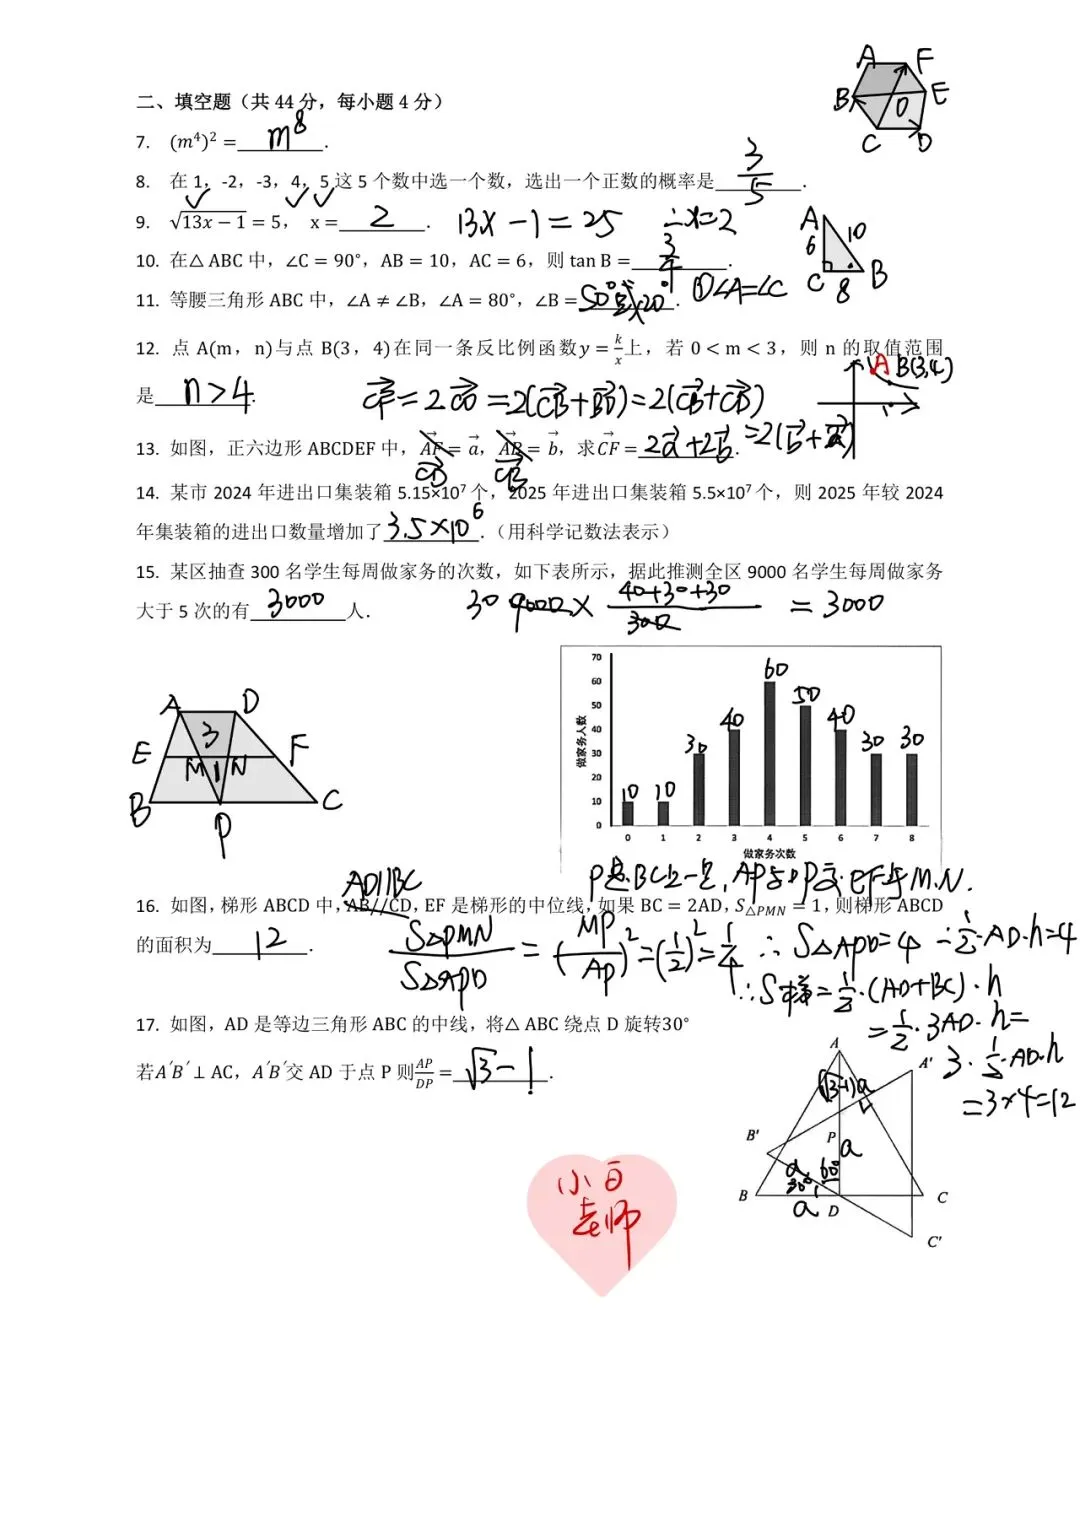 A F
B E
O
C D
二、填空题（共 44 分，每小题 4 分）
7. (m⁴)² = m⁸ .
8. 在 1，-2，-3，4，5 这 5 个数中选一个数，选出一个正数的概率是 3/5 .
9. √(13x − 1) = 5， x = 2 . 13x − 1 = 25 ∴x=2
A
6 10
C 8 B
10. 在△ ABC 中，∠C = 90°，AB = 10，AC = 6，则 tan B = 3/4 .
11. 等腰三角形 ABC 中，∠A ≠ ∠B，∠A = 80°，∠B = 50°或20° . ①∠A=∠C
12. 点 A(m，n)与点 B(3，4)在同一条反比例函数y = k/x上，若 0 < m < 3，则 n 的取值范围
是 n>4 .
A B(3,4)
CF = 2CO = 2(CB+BO) = 2(CB+CD)
13. 如图，正六边形 ABCDEF 中，AF = a，AB = b，求CF = 2a+2b . =2(b+a)
CD CB
14. 某市 2024 年进出口集装箱 5.15×10⁷ 个，2025 年进出口集装箱 5.5×10⁷ 个，则 2025 年较 2024
年集装箱的进出口数量增加了 3.5×10⁶ .（用科学记数法表示）
15. 某区抽查 300 名学生每周做家务的次数，如下表所示，据此推测全区 9000 名学生每周做家务
大于 5 次的有 3000 人. 30 9000 × (40+30+30)/300 = 3000
A D
3
E M 1 N F
B P C
做家务人数
70
60
50
40
30
20
10
0
10 10 30 40 60 50 40 30 30
0 1 2 3 4 5 6 7 8
做家务次数
P是BC上一点，AP与DP交EF于M.N.
AD∥BC
16. 如图，梯形 ABCD 中，AB//CD，EF 是梯形的中位线，如果 BC = 2AD，S△PMN = 1，则梯形 ABCD
的面积为 12 .
S△PMN/S△APD = (MP/AP)² = (1/2)² = 1/4 ∴S△APD = 4 ∴1/2·AD·h=4
∴S梯 = 1/2·(AD+BC)·h
= 1/2·3AD·h =
3·1/2·AD·h
= 3×4=12
17. 如图，AD 是等边三角形 ABC 的中线，将△ ABC 绕点 D 旋转30°
若A′B′ ⊥ AC，A′B′交 AD 于点 P 则AP/DP = √3−1 .
A A′
(√3−1)a
B′ P a
a 60°
30°
B a D C
C′
小百
老师